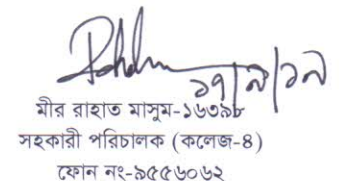 ১৭|৯|১৯
মীর রাহাত মাসুম-১৬৩৯৮
সহকারী পরিচালক (কলেজ-৪)
ফোন নং-৯৫৫৬০৬২